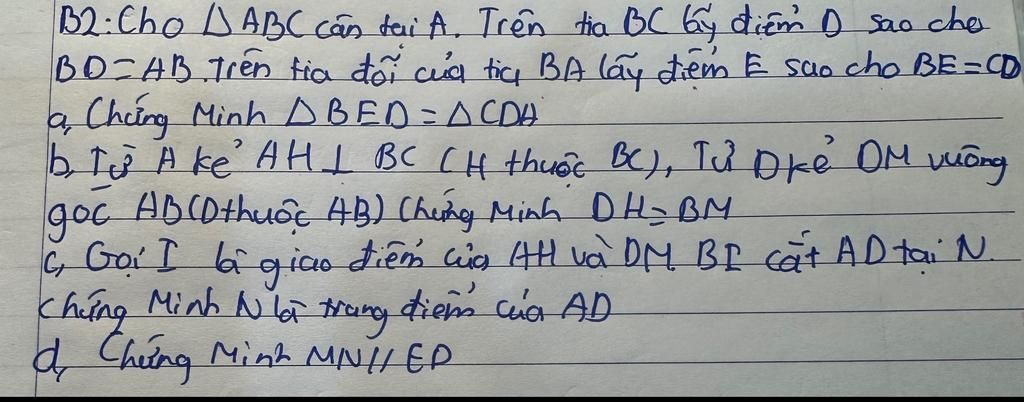 B2: Cho △ABC cân tại A. Trên tia BC lấy điểm D sao cho
BD = AB. Trên tia đối của tia BA lấy điểm E sao cho BE = CD
a, Chứng Minh △BED = △CDA
b, Từ A kẻ AH ⊥ BC (H thuộc BC), Từ D kẻ DM vuông
góc AB (D thuộc AB) Chứng Minh DH = BM
c, Gọi I là giao điểm của AH và DM. BI cắt AD tại N.
Chứng Minh N là trung điểm của AD
d, Chứng Minh MN // ED